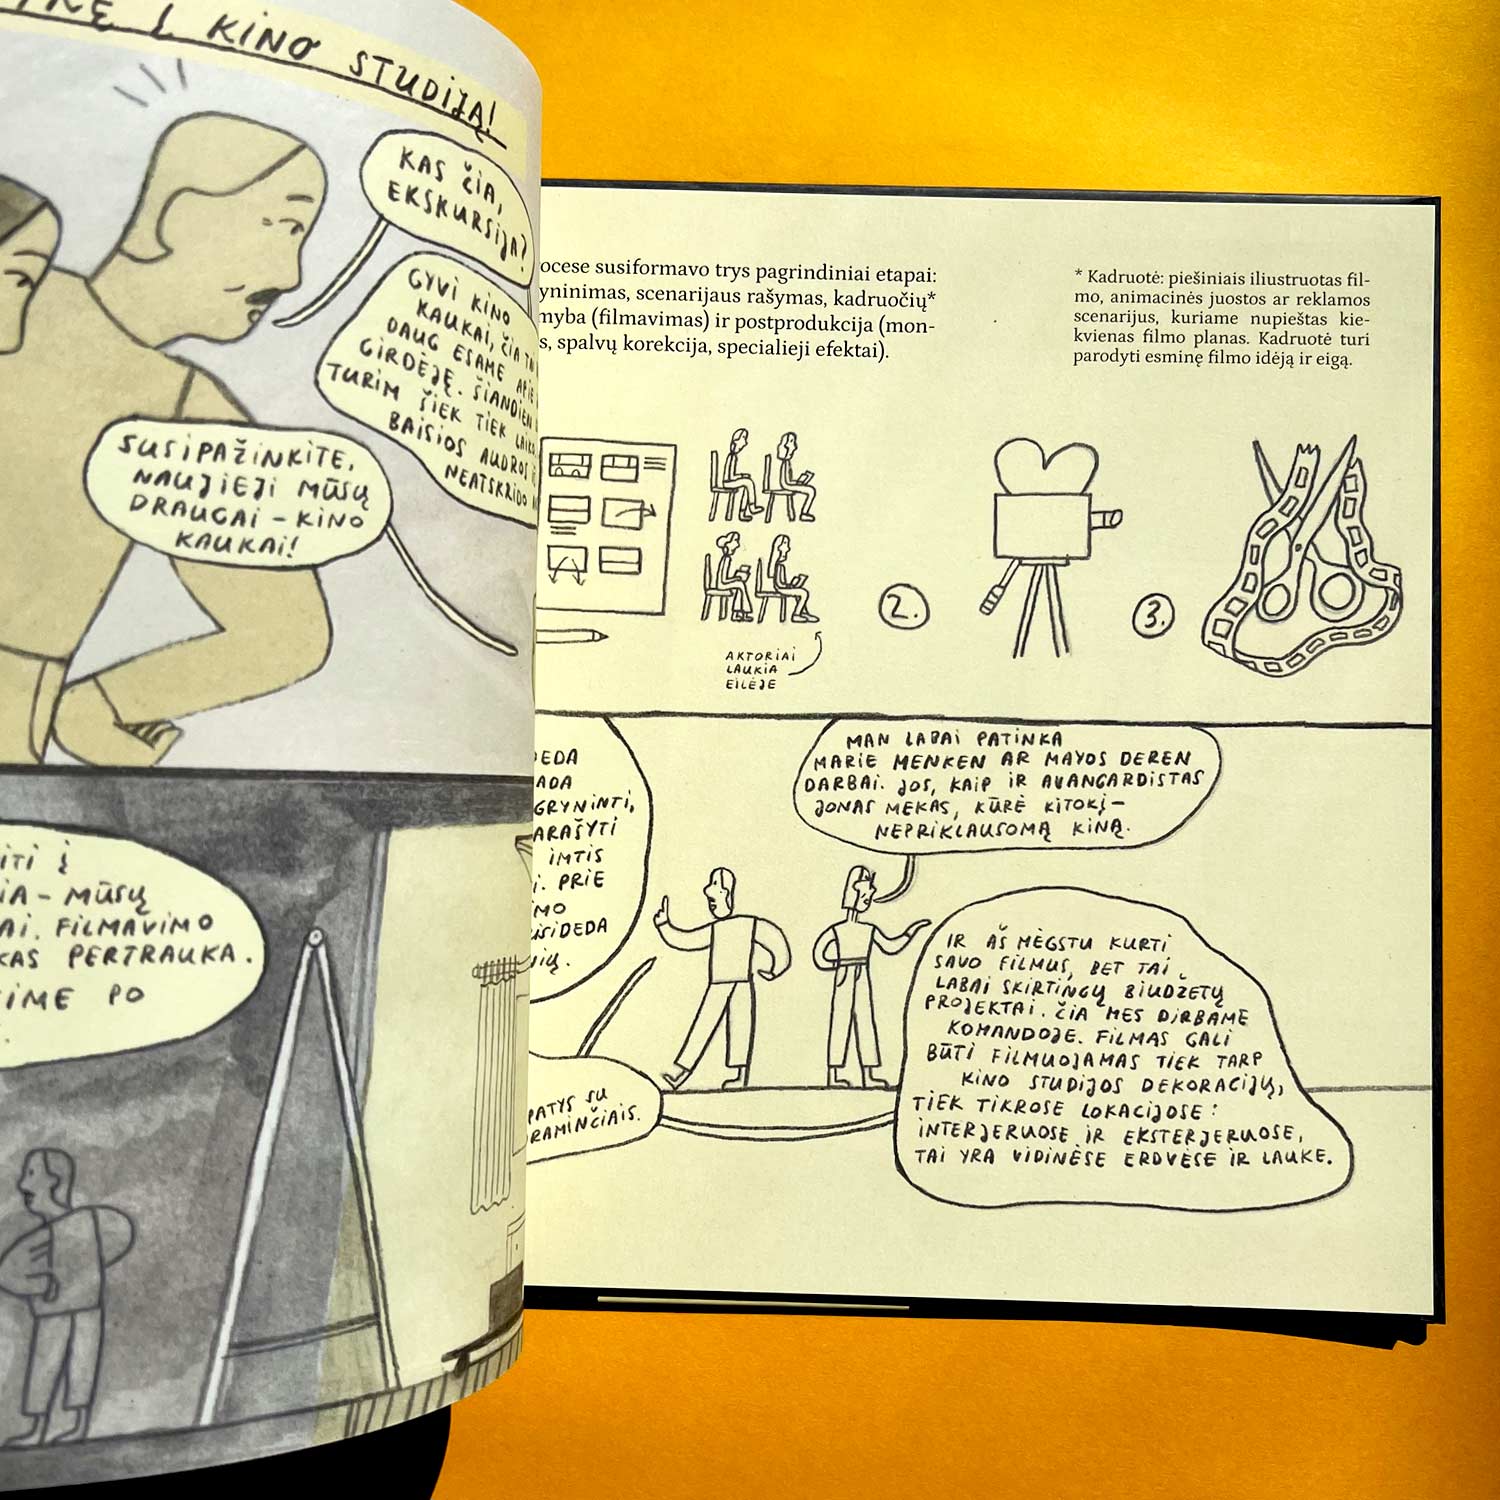 Į KINO STUDIJĄ!
KAS ČIA,
EKSKURSIJA?
GYVI KINO
KAUKAI, ČIA
DAUG ESAME APIE
GIRDĖJĘ. ŠIANDIEN
TURIM ŠIEK TIEK LAIKO,
BAISIOS AUDROS
NEATSKRIDO
SUSIPAŽINKITE,
NAUJIEJI MŪSŲ
DRAUGAI – KINO
KAUKAI!
ITI Į
IA – MŪSŲ
AI. FILMAVIMO
KAS PERTRAUKA.
IME PO
ocese susiformavo trys pagrindiniai etapai:
yninimas, scenarijaus rašymas, kadruočių*
myba (filmavimas) ir postprodukcija (mon-
s, spalvų korekcija, specialieji efektai).
* Kadruotė: piešiniais iliustruotas fil-
mo, animacinės juostos ar reklamos
scenarijus, kuriame nupieštas kie-
kvienas filmo planas. Kadruotė turi
parodyti esminę filmo idėją ir eigą.
AKTORIAI
LAUKIA
EILĖJE
2.
3.
DEDA
ADA
GRYNINTI,
ARAŠYTI
IMTIS
I. PRIE
IMO
ISIDEDA
IŲ.
PATYS SU
RAMINČIAIS.
MAN LABAI PATINKA
MARIE MENKEN AR MAYOS DEREN
DARBAI. JOS, KAIP IR AVANGARDISTAS
JONAS MEKAS, KŪRĖ KITOKĮ –
NEPRIKLAUSOMĄ KINĄ.
IR AŠ MĖGSTU KURTI
SAVO FILMUS, BET TAI
LABAI SKIRTINGŲ BIUDŽETŲ
PROJEKTAI. ČIA MES DIRBAME
KOMANDOJE. FILMAS GALI
BŪTI FILMUOJAMAS TIEK TARP
KINO STUDIJOS DEKORACIJŲ,
TIEK TIKROSE LOKACIJOSE:
INTERJERUOSE IR EKSTERJERUOSE,
TAI YRA VIDINĖSE ERDVĖSE IR LAUKE.